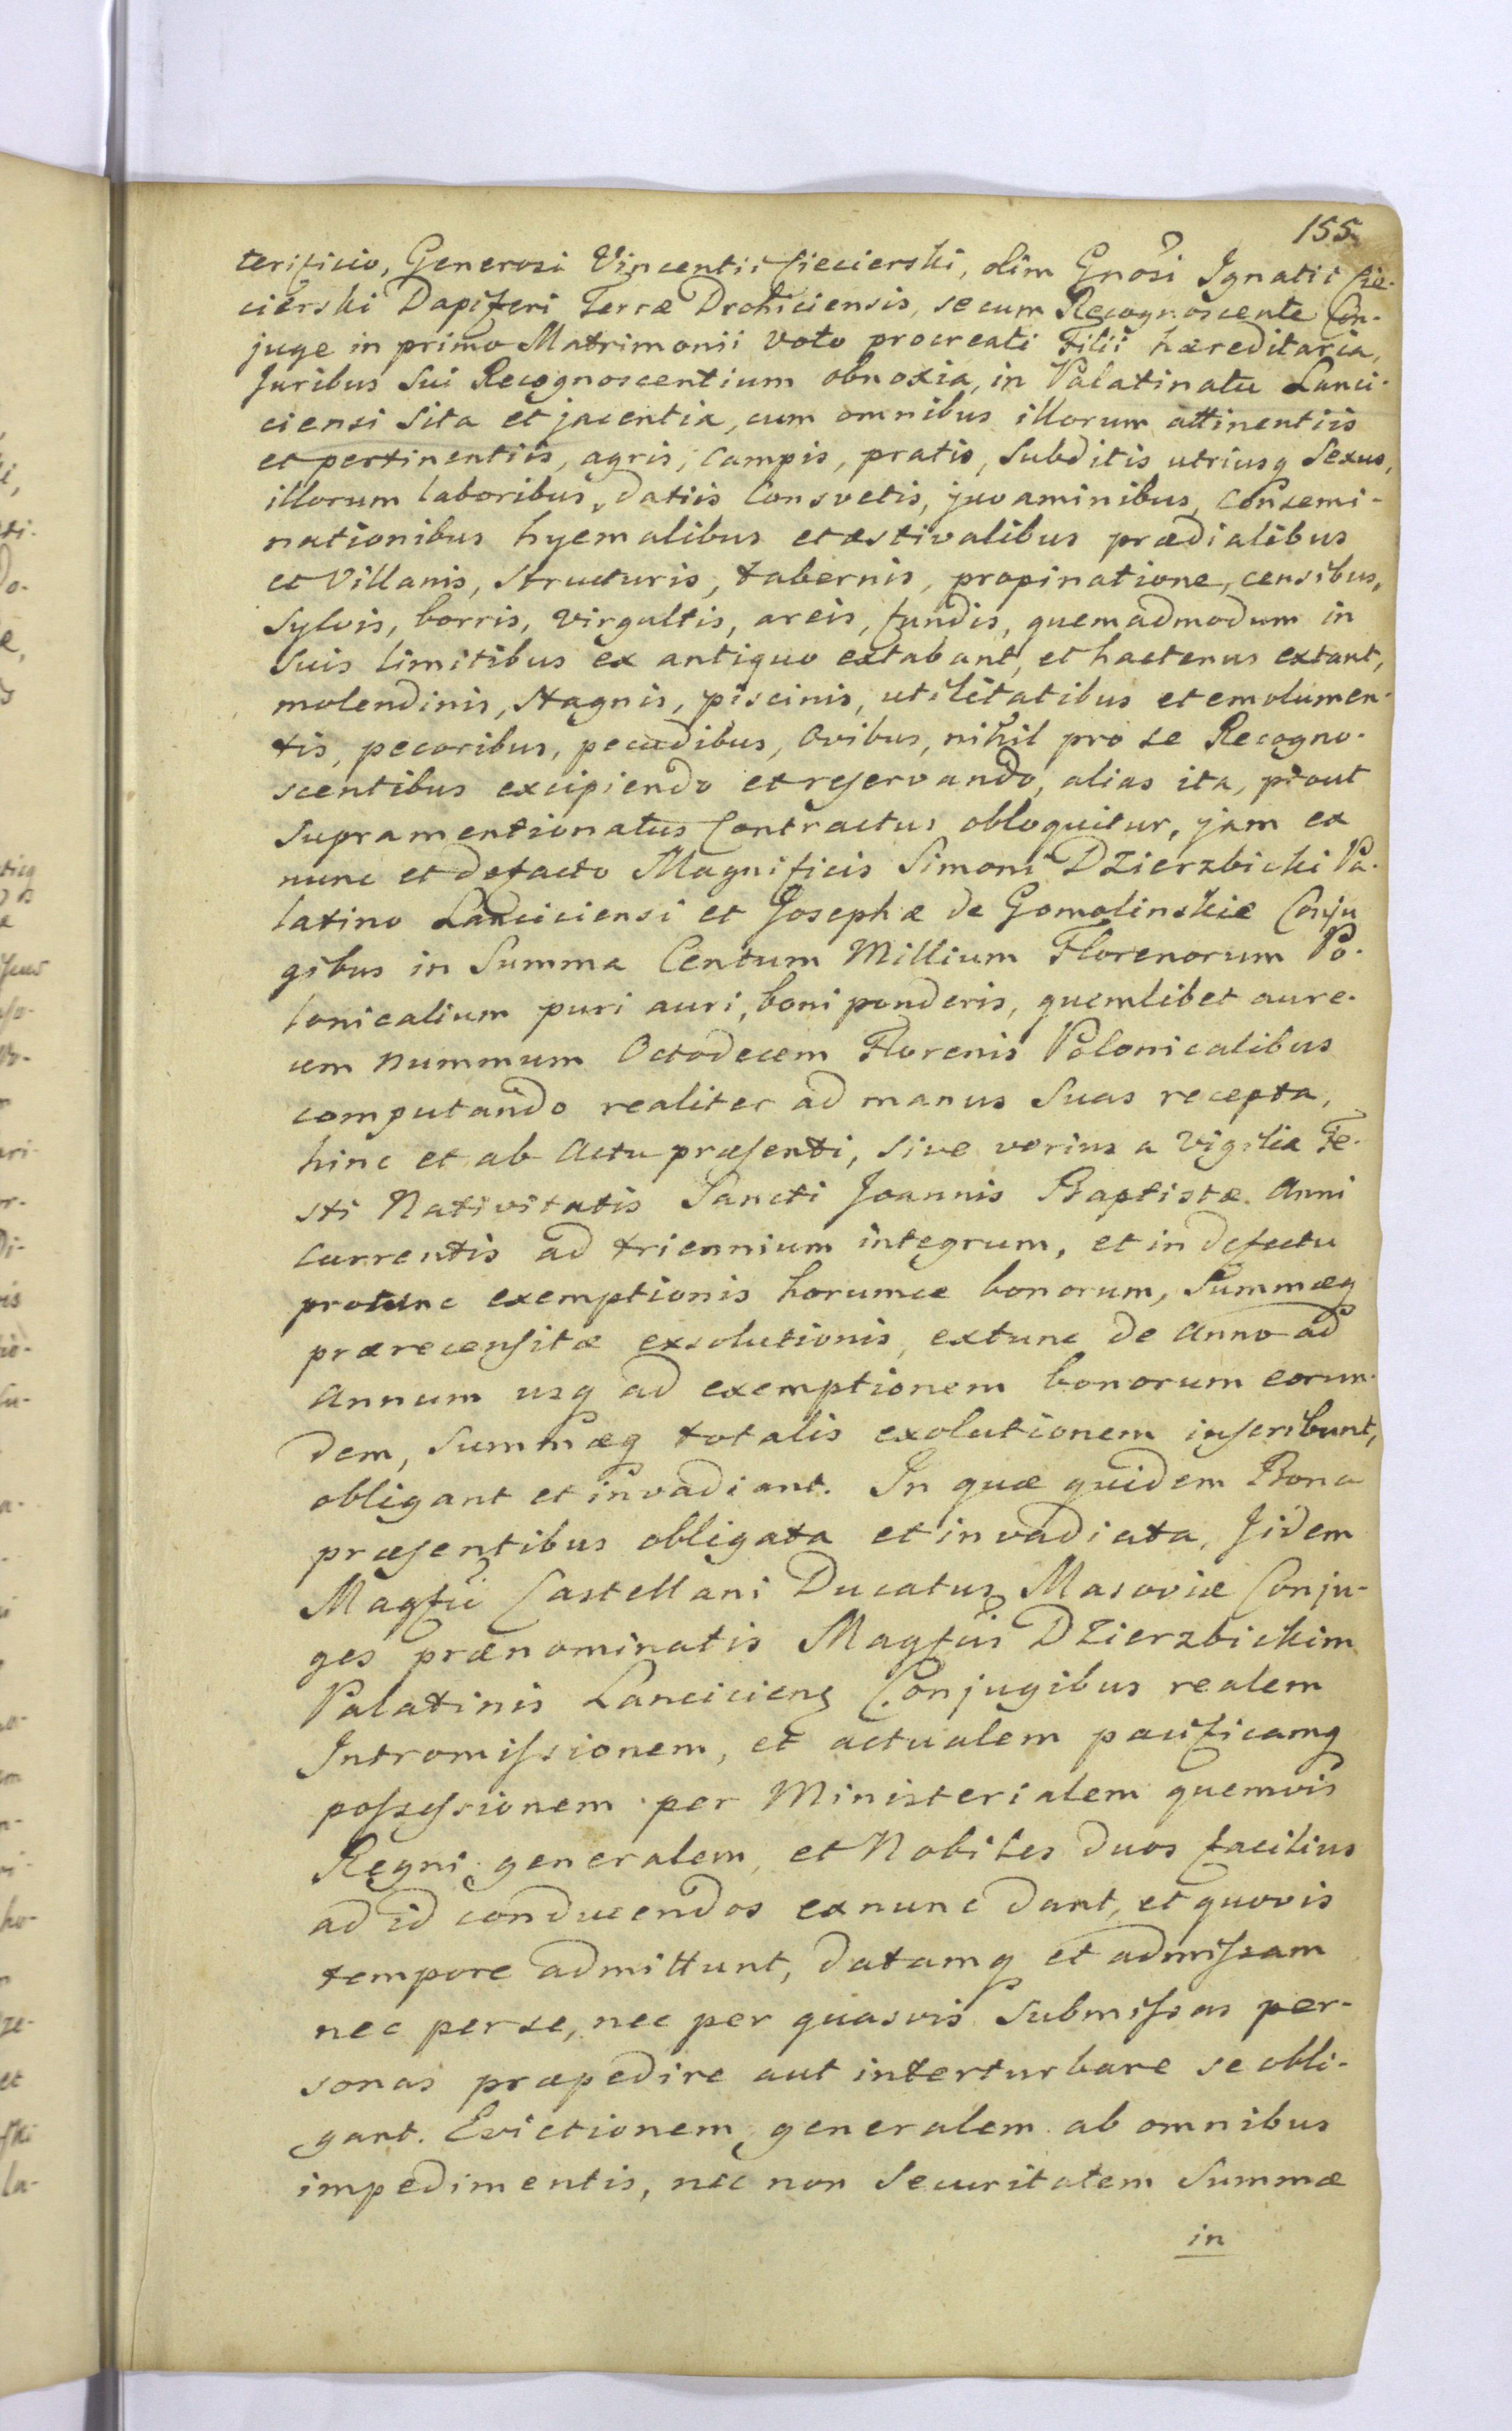 155
terificio, Generosi Vincentii Ciecierski, olim Gnosi Ignatii Cie-
cierski Dapiferi Terræ Drohiciensis, secum Recognoscente Con-
juge in primo Matrimonii voto procreati Filii hæreditaria,
Juribus Sui Recognoscentium obnoxia, in Palatinatu Lanci-
ciensi Sita et jacentia, cum omnibus illorum attinentiis
et pertinentiis, agris, Campis, pratis, Subditis utriusq Sexus,
illorum laboribus, datiis Consvetis, juvaminibus, Consemi-
nationibus hyemalibus et æstivalibus prædialibus
et Villanis, Structuris, tabernis, propinatione, censibus,
Sylvis, borris, Virgultis, areis, fundis, quemadmodum in
Suis limitibus ex antiquo extabant, et hactenus extant,
molendinis, Stagnis, piscinis, utilitatibus et emolumen-
tis, pecoribus, pecudibus, Ovibus, nihil pro se Recogno-
scentibus excipiendo et reservando, alias ita, prout
Supramentionatus Contractus obloquitur, jam ex
nunc et defacto Magnificis Simoni Dzierzbicki Pa-
latino Lanciciensi et Josephæ de Gomolinskie Conju
gibus in Summa Centum Millium Florenorum Po-
lonicalium puri auri, boni ponderis, quemlibet aure-
um nummum Octodecem Florenis Polonicalibus
computando realiter ad manus Suas recepta,
hinc et ab Actu præsenti, Sive verius a Vigilia Fe-
sti Nativitatis Sancti Joannis Baptistæ Anni
Currentis ad triennium integrum, et in defectu
protunc exemptionis horumce bonorum, Summæq
prærecensitæ exsolutionis, extunc de Anno ad
Annum usq ad exemptionem bonorum eorun-
dem, Summæq totalis exolutionem inscribunt,
obligant et invadiant. In quæ quidem Bona
præsentibus obligata et invadiata, Jidem
Magfci Castellani Ducatus Masoviæ Conju-
ges prænominatis Magfcis Dzierzbickim
Palatinis Lanciciens Conjugibus realem
Intromissionem, et actualem pacificamq
possessionem per Ministerialem quemvis
Regni generalem, et Nobiles duos facilius
ad id conducendos exnunc dant, et quovis
tempore admittunt, datamq et admissam
nec per se, nec per quasvis Submissas per-
sonas præpedire aut interturbare se obli-
gant. Evictionem generalem ab omnibus
impedimentis, nec non Securitatem Summæ
in